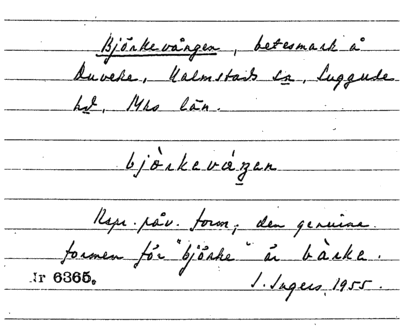 Björkevången, betesmark å
Duveke, Halmstads sn, Luggude
hd, Mhs län.
bjòrkevàꞥen
Repr. påv. form; den genuina
formen för "björke" är bàrke.
Nr 6365.
I. Ingers 1955.